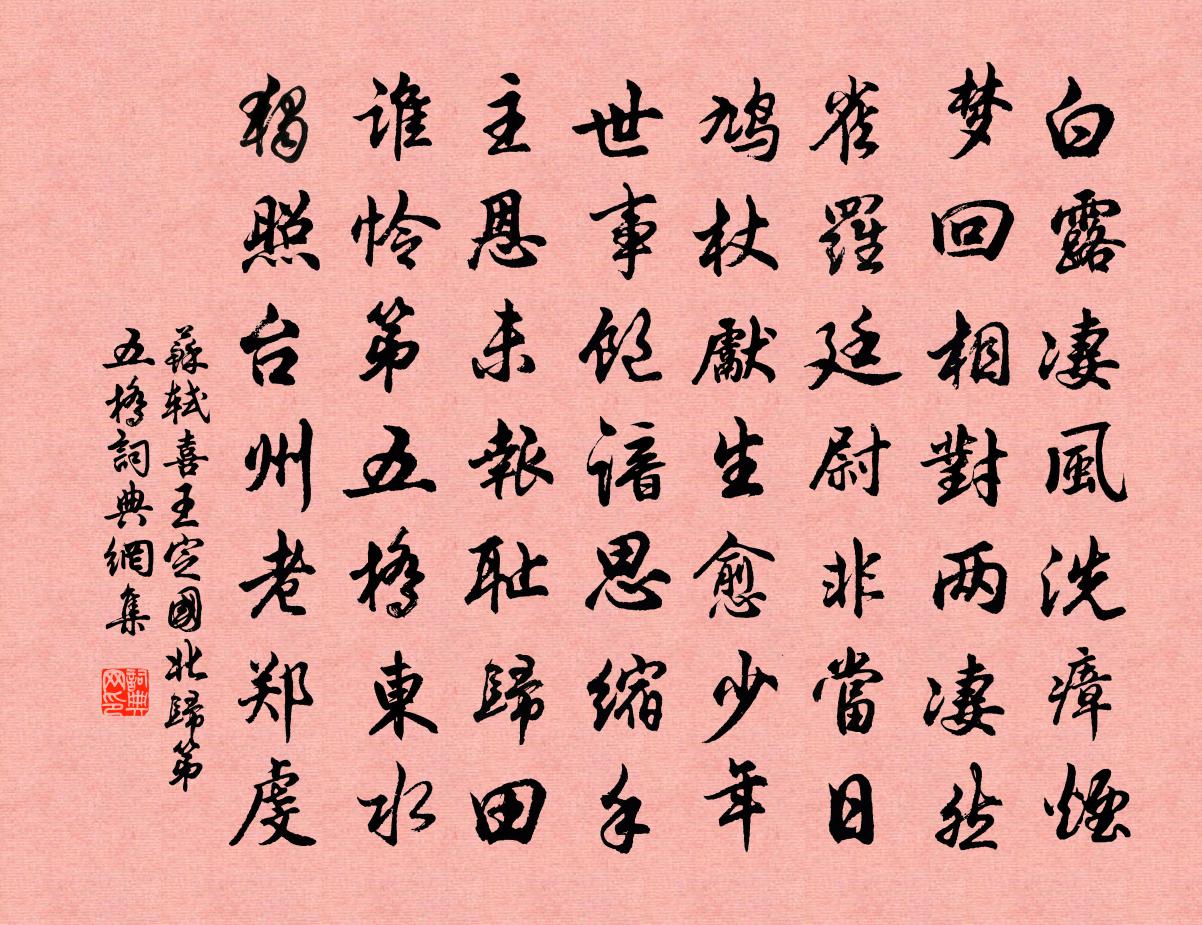 白露凄風洗瘴煙
梦回相對两凄然
雀羅廷尉非當日
鸠杖獻生愈少年
世事飽諳思縮手
主恩未報耻歸田
谁怜第五橋東水
獨照台州老郑虔
蘇轼喜王定國北歸第
五橋詞典網集
詞典
网印